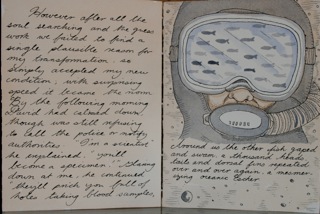 However after all the
soul searching and the guess
work we failed to find a
single plausible reason for
my transformation, so
simply accepted my new
condition, with surprising
speed it became the norm.
By the following morning
David had calmed down,
though was still refusing
to call the police or notify
authorities. "I'm a scientist"
he explained, "you'll
become a specimen." Staring
down at me, he continued
"they'll prick you full of
holes taking blood samples,
Around us the other fish gaped
and swam, a thousand heads
tails and dorsal fins repeated
over and over again, a mesmer-
izing oceanic Escher.